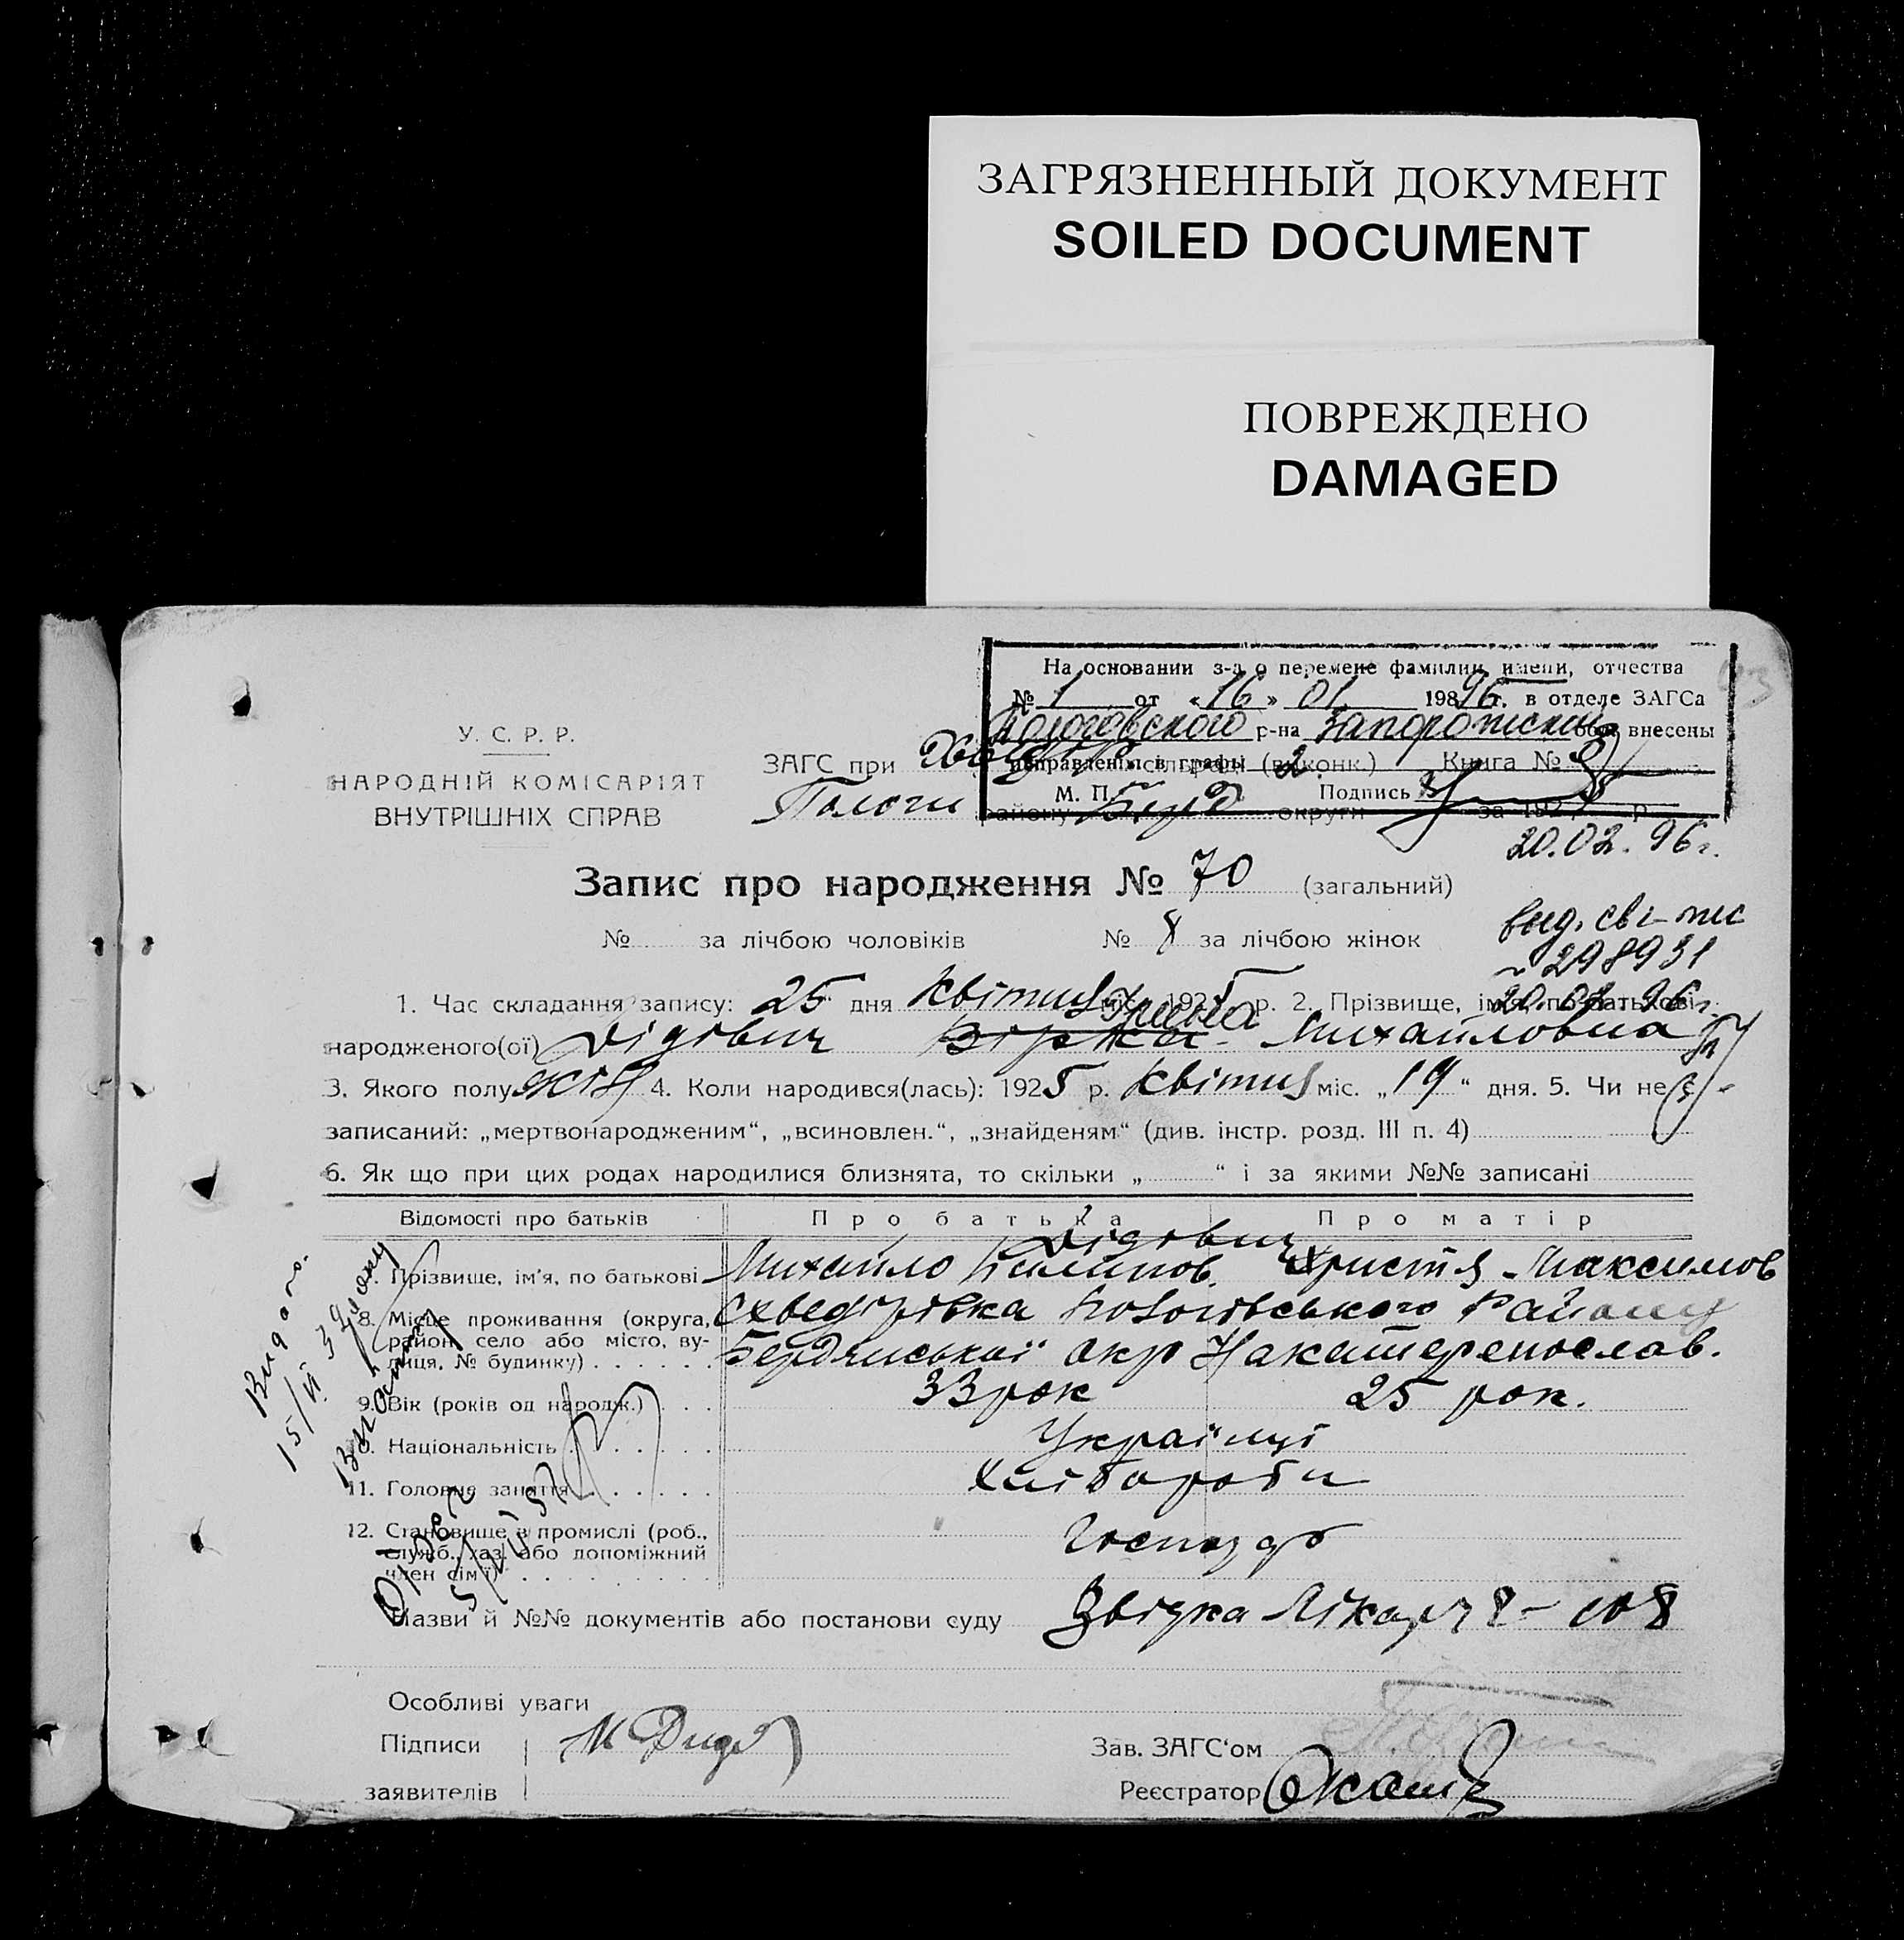 ЗАГРЯЗНЕННЫЙ ДОКУМЕНТ
SOILED DOCUMENT
ПОВРЕЖДЕНО
DAMAGED
На основании з-а о перемене фамилии, имени, отчества
№ 1 от «16» 01 1996г. в отделе ЗАГСа
Пологовского р-на Запорожской обл. внесены
исправления в графы 2.
М. П. Подпись
20.02.96г.
У. С. Р. Р.
НАРОДНІЙ КОМІСАРІЯТ
ВНУТРІШНІХ СПРАВ
ЗАГС при (виконк.) Книга №
Пологи району Берд округи за 192 р.
Запис про народження № 70 (загальний)
№ за лічбою чоловіків № 8 за лічбою жінок
вид. сві-
298931
20.02.96г.
1. Час складання запису: 25 дня квітня міс. 1925 р. 2. Прізвище, ім'я, по батькові
Ірина
народженого(ої) Дідович Михайловна
3. Якого полу жін 4. Коли народився(лась): 1925 р. квітня міс. „19“ дня. 5. Чи не є
записаний: „мертвонародженим“, „всиновлен.“, „знайденям“ (див. інстр. розд. III п. 4)
6. Як що при цих родах народилися близнята, то скільки „ “ і за якими №№ записані
Відомості про батьків Про батька Про матір
Дідович
7. Прізвище, ім'я, по батькові Михайло Пилипов. Христя Максимов
8. Місце проживання (округа, район, село або місто, вулиця, № будинку) Пологівського Району
Бердянської окр
9. Вік (років од народж.) 33 рок 25 рок.
10. Національність Українці
11. Головне заняття Хлібороби
12. Становище в промислі (роб., служб., хаз. або допоміжний член сім'ї) Господар
Назви й №№ документів або постанови суду Звідка Лікаря
Особливі уваги
Підписи М Дидо
заявителів
Зав. ЗАГС'ом
Реєстратор
Видано
15/VI